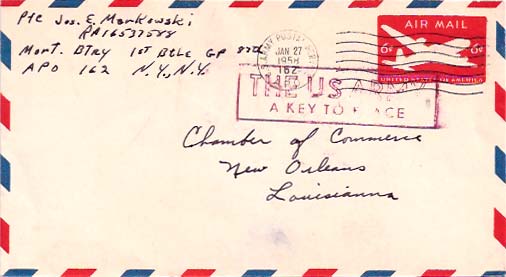 Pfc Jos. E. Markowski
RA16537588
Mort. Btry 1st Btle Gp 87th
APO 162 N.Y., N.Y.
ARMY POSTAL
JAN 27
1958
162
AIR MAIL
6¢ 6¢
UNITED STATES OF AMERICA
THE US ARMY
A KEY TO PEACE
Chamber of Commerce
New Orleans
Louisianna